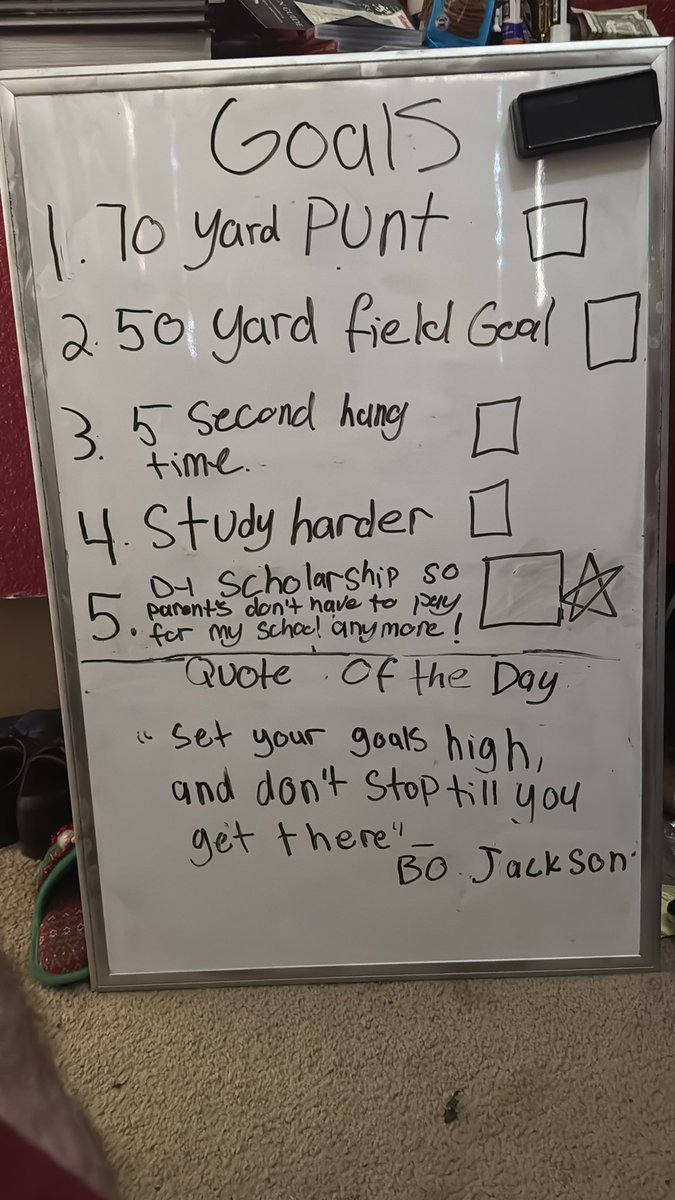 Goals
1. 70 yard Punt
2. 50 yard field Goal
3. 5 second hang
time.
4. Study harder
5. D-1 scholarship so
parent's don't have to pay
for my school anymore!
Quote Of the Day
"Set your goals high,
and don't stop till you
get there" -
Bo Jackson